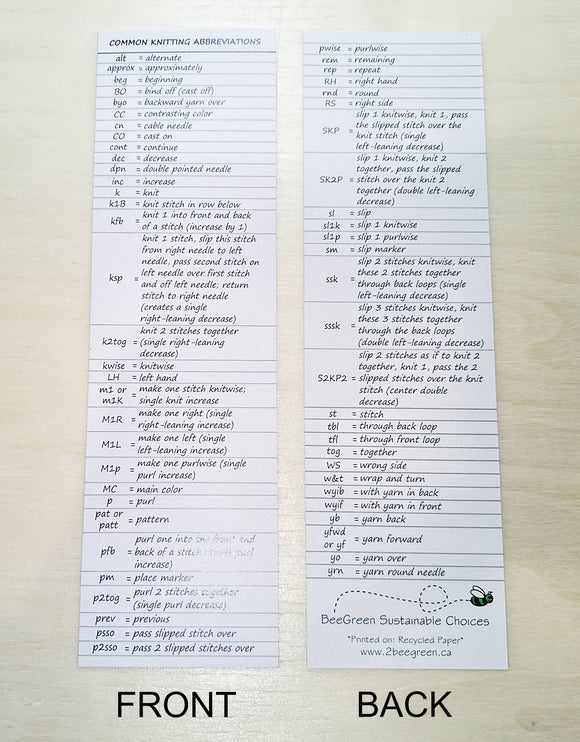 COMMON KNITTING ABBREVIATIONS
alt = alternate
approx = approximately
beg = beginning
BO = bind off (cast off)
byo = backward yarn over
CC = contrasting color
cn = cable needle
CO = cast on
cont = continue
dec = decrease
dpn = double pointed needle
inc = increase
k = knit
k1B = knit stitch in row below
kfb = knit 1 into front and back
of a stitch (increase by 1)
knit 1 stitch, slip this stitch
from right needle to left
needle, pass second stitch on
ksp = left needle over first stitch
and off left needle; return
stitch to right needle
(creates a single
right-leaning decrease)
knit 2 stitches together
k2tog = (single right-leaning
decrease)
kwise = knitwise
LH = left hand
m1 or = make one stitch knitwise;
m1K single knit increase
M1R = make one right (single
right-leaning increase)
M1L = make one left (single
left-leaning increase)
M1p = make one purlwise (single
purl increase)
MC = main color
p = purl
pat or
patt = pattern
purl one into the front and
pfb = back of a stitch purl
increase)
pm = place marker
p2tog = purl 2 stitches together
(single purl decrease)
prev = previous
psso = pass slipped stitch over
p2sso = pass 2 slipped stitches over
FRONT
pwise = purlwise
rem = remaining
rep = repeat
RH = right hand
rnd = round
RS = right side
slip 1 knitwise, knit 1, pass
SKP = the slipped stitch over the
knit stitch (single
left-leaning decrease)
slip 1 knitwise, knit 2
together, pass the slipped
SK2P = stitch over the knit 2
together (double left-leaning
decrease)
sl = slip
sl1k = slip 1 knitwise
sl1p = slip 1 purlwise
sm = slip marker
slip 2 stitches knitwise, knit
ssk = these 2 stitches together
through back loops (single
left-leaning decrease)
slip 3 stitches knitwise, knit
sssk = these 3 stitches together
through the back loops
(double left-leaning decrease)
slip 2 stitches as if to knit 2
together, knit 1, pass the 2
S2KP2 = slipped stitches over the knit
stitch (center double
decrease)
st = stitch
tbl = through back loop
tfl = through front loop
tog = together
WS = wrong side
w&t = wrap and turn
wyib = with yarn in back
wyif = with yarn in front
yb = yarn back
yfwd = yarn forward
or yf
yo = yarn over
yrn = yarn round needle
BeeGreen Sustainable Choices
"Printed on: Recycled Paper"
www.2beegreen.ca
BACK